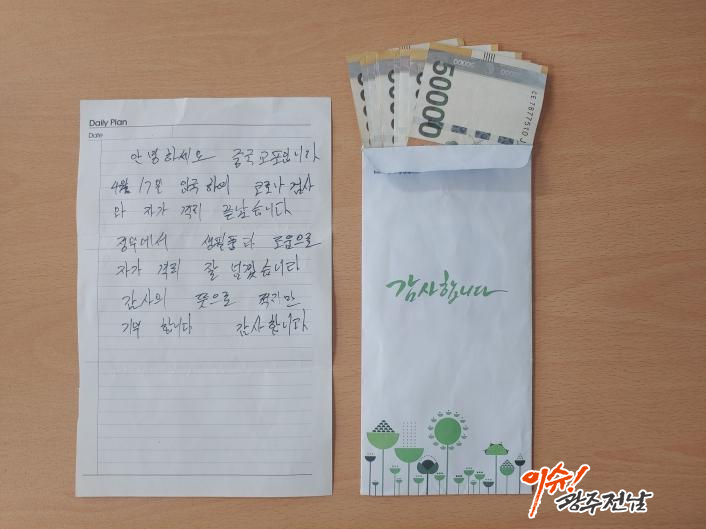 Daily Plan
Date
안녕하세요 중국교포입니다
4월 17일 입국하여 코로나 검사
와 자가 격리 끝났습니다
정부에서 생필품과 도움으로
자가 격리 잘 넘겼습니다
감사의 뜻으로 적지만
기부 합니다 감사합니다
50000
50000
50000
CE7877510J
감사합니다
이슈!
광주전남